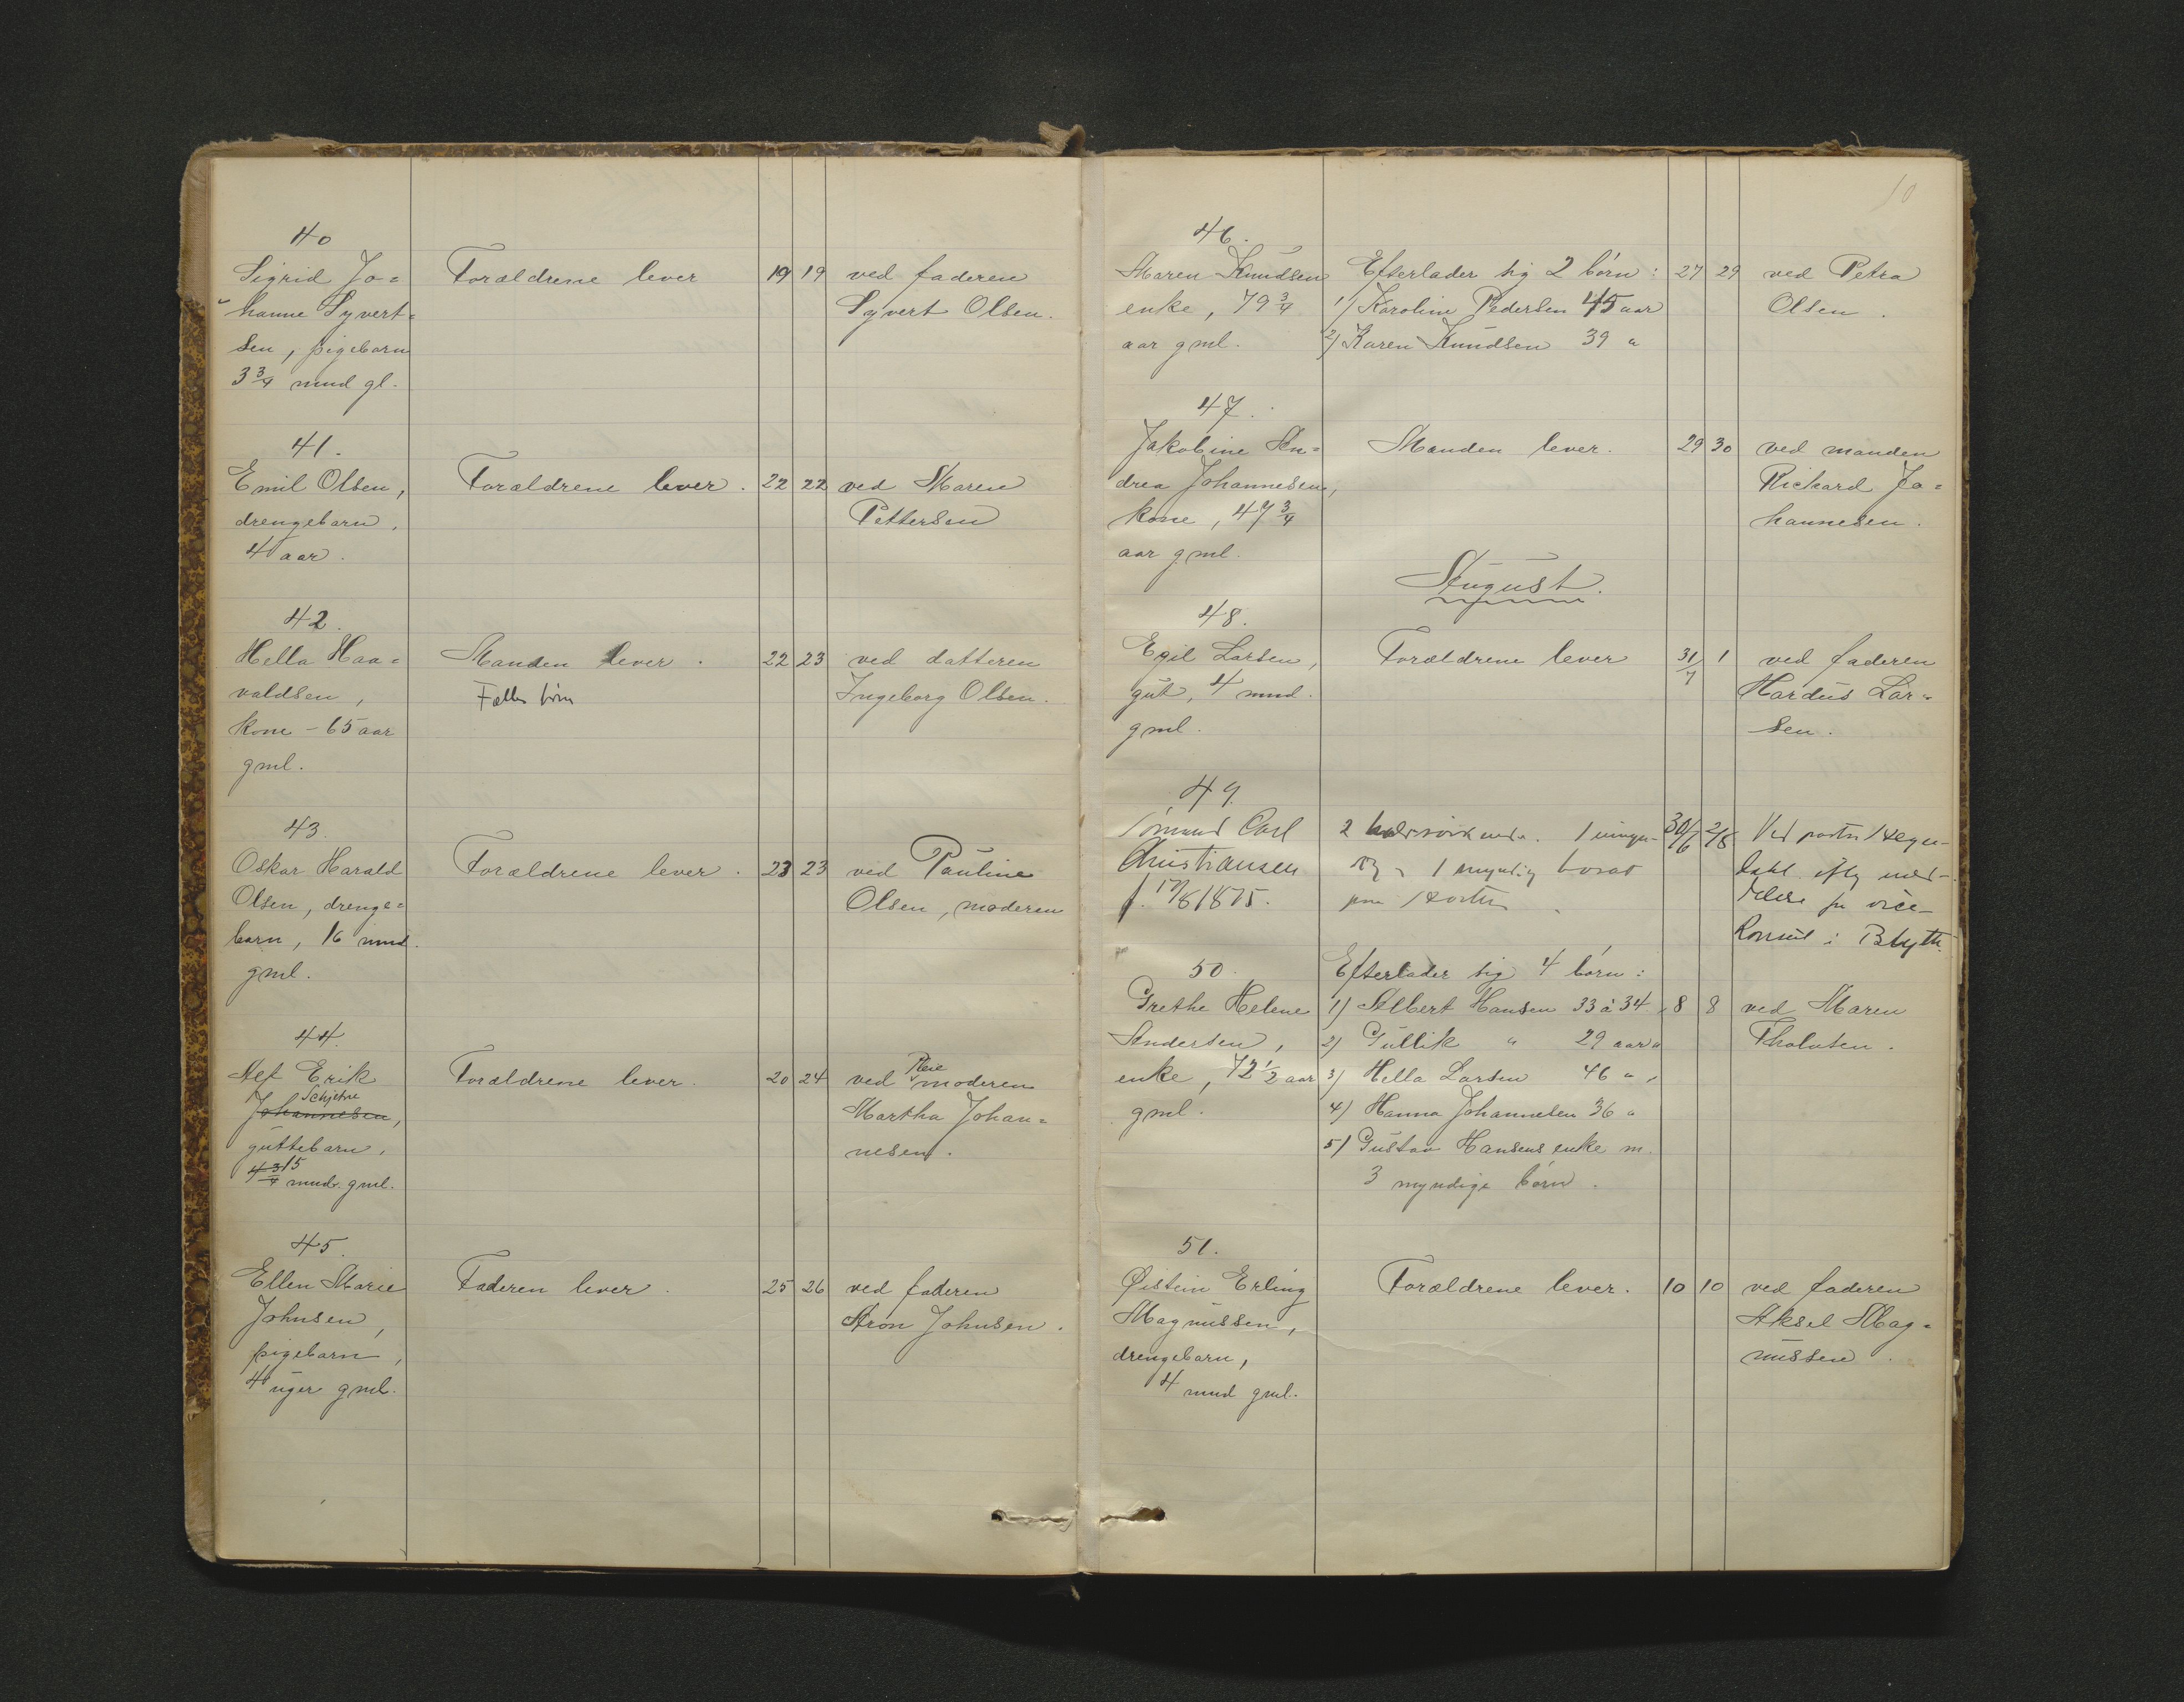 40
Sigrid Jo= Forældrene lever 19 19 ved faderen
hanne Syvert= Syvert Olsen.
sen, pigebarn
3 3/4 mnd gl.
41.
Emil Olsen, Forældrene lever. 22 22 ved Maren
drengebarn, Pettersen
4 aar.
42.
Hella Haa= Manden lever. 22 23 ved datteren
valdsen, Fælles børn Ingeborg Olsen.
kone - 65 aar
gml.
43.
Oskar Harald Forældrene lever. 23 23 ved Pauline
Olsen, drenge= Olsen, moderen
barn, 16 mnd.
gml.
44.
Alf Erik Forældrene lever. 20 24 ved Pleie moderen
Schjetne
Johannesen, Martha Johan=
guttebarn, nesen.
4 3/4 15 mndr. gml.
45.
Ellen Marie Faderen lever. 25 26 ved faderen
Johnsen, Aron Johnsen.
pigebarn,
4 uger gml.
10
46.
Maren Knudsen Efterlader sig 2 børn: 27 29 ved Petra
enke, 79 3/4 1) Karoline Pedersen 45 aar Olsen.
aar gml. 2) Karen Knudsen 39 "
47.
Jakobine An= Manden lever. 29 30 ved manden
drea Johannesen, Rickard Jo=
kone, 47 3/4 hannesen.
aar gml.
August.
48.
Egil Larsen, Forældrene lever 31/7 1 ved faderen
gut, 4 mnd. Hardus Lar=
gml. sen.
49.
Carl 2 1 30/6 2/8 Ved
Christiansen 1 myndig bosat
f. 17/6 1875. paa
konsul i Blyth.
50. Efterlader sig 4 børn:
Grethe Helene 1) Albert Hansen 33 à 34 8 8 ved Maren
Andersen, 2) Gullik " 29 aar " Tholvsen.
enke, 72 1/2 aar 3) Hella Larsen 46 " "
gml. 4) Hanna Johannesen 36 "
5) Gustav Hansens enke m.
3 myndige børn.
51.
Øistein Erling Forældrene lever. 10 10 ved faderen
Magnussen, Aksel Mag=
drengebarn, nussen.
4 mnd gml.